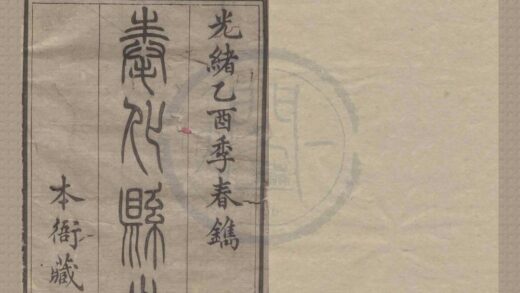 光緒乙酉季春鐫
奉化縣
本衙藏